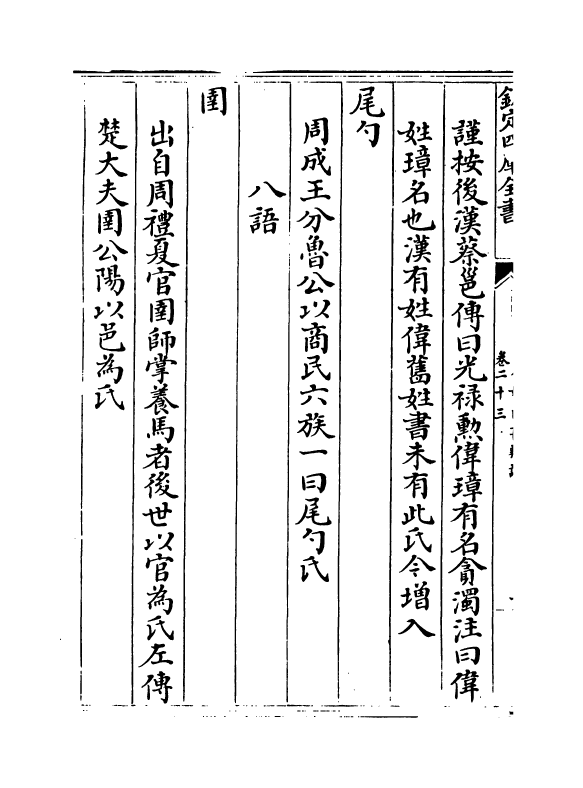 欽定四庫全書
卷二十三
謹按後漢蔡邕傳曰光禄勲偉璋有名貪濁注曰偉
姓璋名也漢有姓偉舊姓書未有此氏今增入
尾勺
周成王分魯公以商民六族一曰尾勺氏
八語
圉
出自周禮夏官圉師掌養馬者後世以官為氏左傳
楚大夫圉公陽以邑為氏